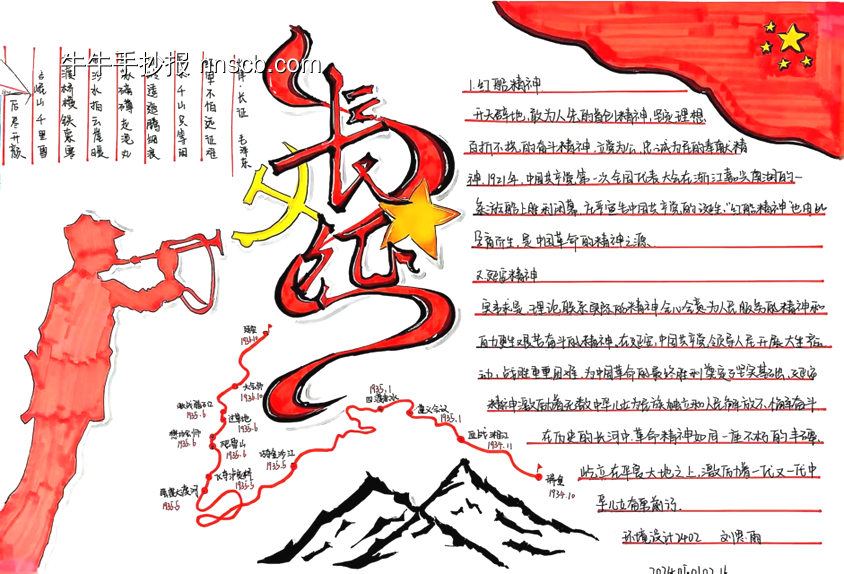 牛牛手抄报 nnscb.com
律·长征 毛泽东
不怕远征难
千山只等闲
逶迤腾细浪
磅礴走泥丸
水拍云崖暖
桥横铁索寒
岷山千里雪
后尽开颜
长征
1.红船精神
开天辟地、敢为人先的首创精神,坚定理想
百折不挠的奋斗精神,立党为公、忠诚为民的奉献精
神,1921年,中国共产党第一次全国代表大会在浙江嘉兴南湖的一
条游船上胜利闭幕,庄严宣告中国共产党的诞生,"红船精神"也由此
孕育而生,是中国革命的精神之源.
2.延安精神
实事求是、理论联系实际的精神,全心全意为人民服务的精神和
自力更生艰苦奋斗的精神,在延安,中国共产党领导人民开展大生产运
动,战胜重重困难,为中国革命的最终胜利奠定了坚实基础,延安
精神激励着无数中华儿女为民族独立和人民解放不懈奋斗
在历史的长河中,革命精神如同一座不朽的丰碑,
屹立在华夏大地之上,激励着一代又一代中
华儿女奋勇前行.
环境设计2402 刘思雨
延安
1936.10
大会师
1936.10
1935.6
过草地
1935.6
懋功会师
1935.6
爬雪山
1935.6
飞夺泸定桥
1935.5
强渡大渡河
1935.5
巧渡金沙江
1935.5
1935.1
四渡赤水
遵义会议
1935.1
血战湘江
1934.11
瑞金
1934.10